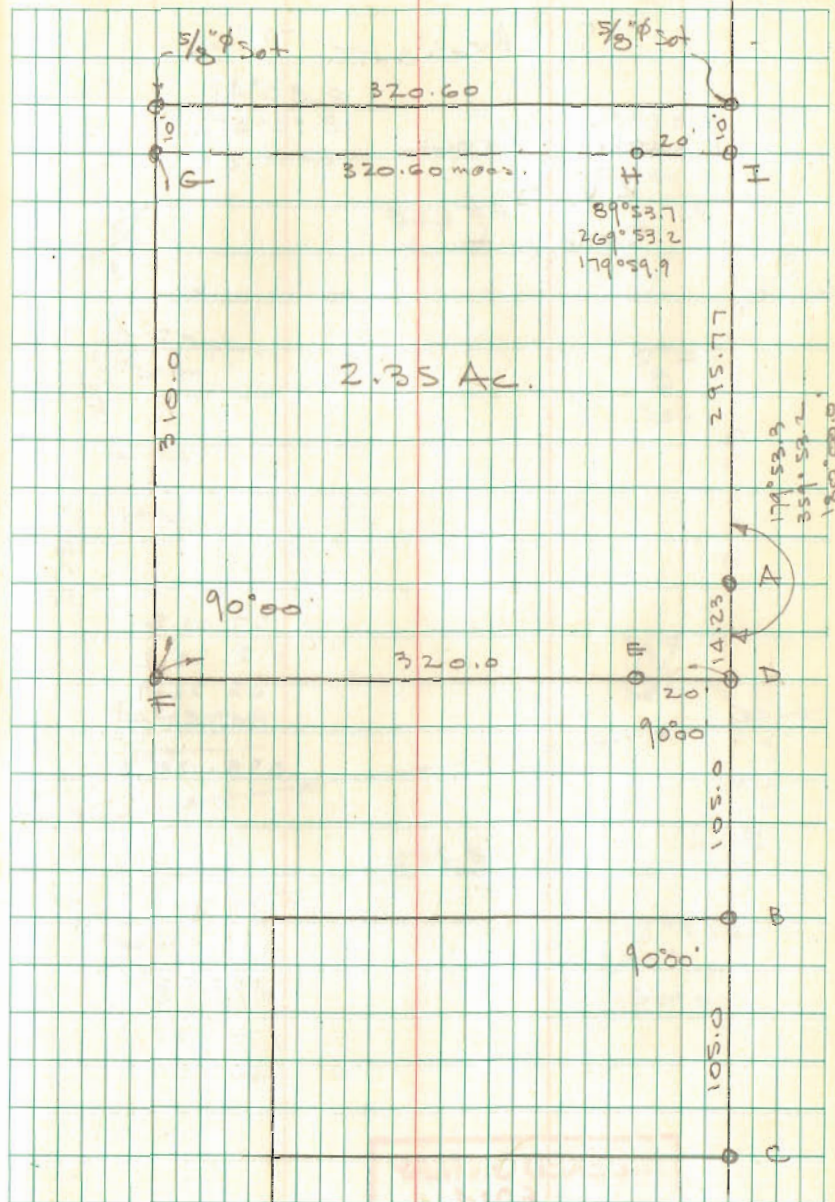 5/8"φ Set
5/8"φ Set
320.60
10'
10'
20'
G
320.60 meas.
H
I
89°53.7
269°53.2
179°59.9
295.77
2.35 Ac.
310.0
179°53.3
359°53.2
180°00.0'
A
90°00'
14.23
320.0
E
D
F
20'
90°00'
105.0
B
90°00'
105.0
C